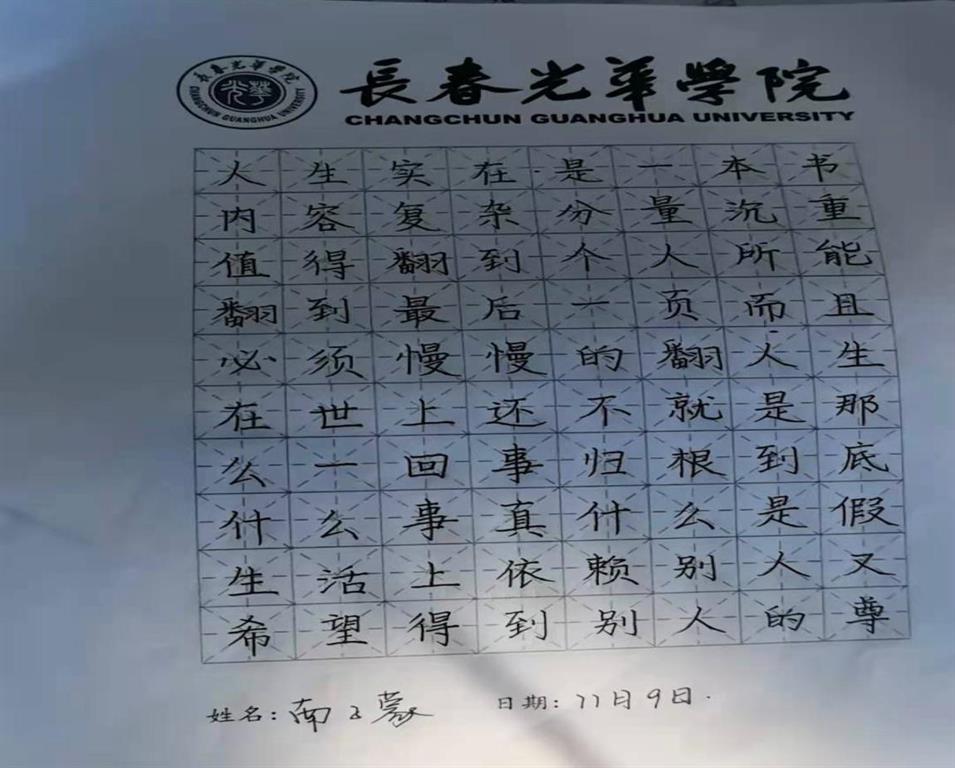 長春光华學院
CHANGCHUN GUANGHUA UNIVERSITY
長春光華學院
CHANGCHUN GUANGHUA UNIVERSITY
人生实在是一本书
内容复杂分量沉重
值得翻到个人所能
翻到最后一页而且
必须慢慢的翻人生
在世上还不就是那
么一回事归根到底
什么事真什么是假
生活上依赖别人又
希望得到别人的尊
姓名:南 蒙 日期:11月9日.